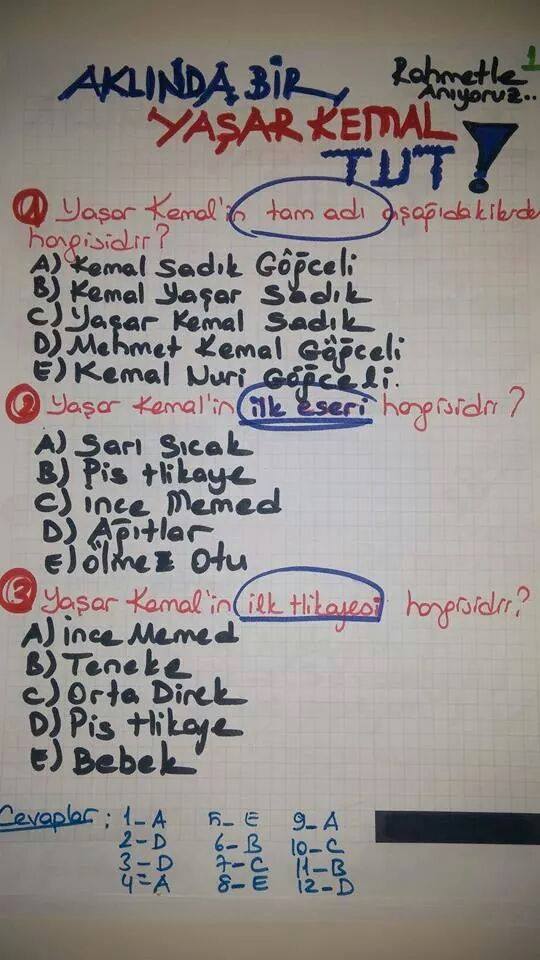 1
AKLINDA BİR
Rahmetle
Anıyoruz..
YAŞAR KEMAL
TUT!
1 Yaşar Kemal'in tam adı aşağıdakilerde
hangisidir?
A) Kemal Sadık Göğceli
B) Kemal Yaşar Sadık
C) Yaşar Kemal Sadık
D) Mehmet Kemal Göğceli
E) Kemal Nuri Göğceli.
2 Yaşar Kemal'in ilk eseri hangisidir?
A) Sarı Sıcak
B) Pis Hikaye
C) İnce Memed
D) Ağıtlar
E) Ölmez Otu
3 Yaşar Kemal'in ilk Hikayesi hangisidir?
A) İnce Memed
B) Teneke
C) Orta Direk
D) Pis Hikaye
E) Bebek
Cevaplar: 1-A 5-E 9-A
2-D 6-B 10-C
3-D 7-C 11-B
4=A 8-E 12-D